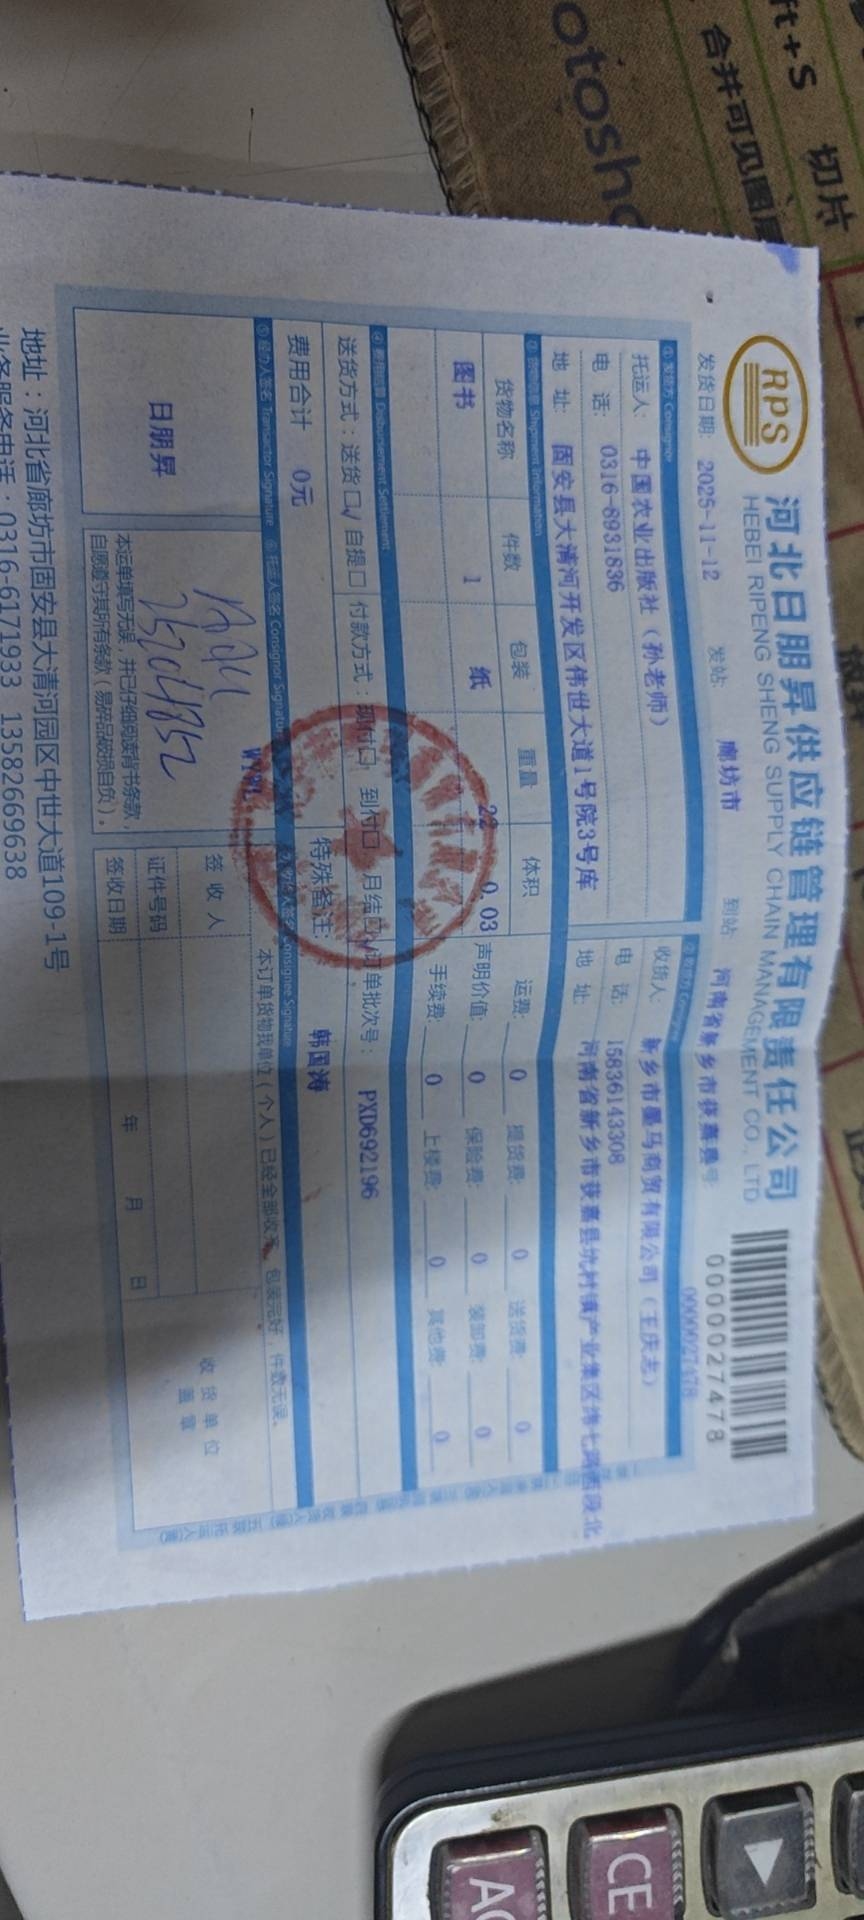 RPS
河北日朋昇供应链管理有限责任公司
HEBEI RIPENG SHENG SUPPLY CHAIN MANAGEMENT CO., LTD
0000027478
发货日期: 2025-11-12 发站: 廊坊市 到站: 河南省新乡市获嘉县号 0000027478
① 发货方 Consignor
托运人: 中国农业出版社（孙老师）
收货人: 新乡市墨马商贸有限公司（王庆志）
电 话: 0316-8931836
电 话: 15836143308
地 址: 固安县大清河开发区伟世大道1号院3号库
地 址: 河南省新乡市获嘉县亢村镇产业集区纬七路西段北
③ 货物信息 Shipment Information
货物名称 件数 包装 重量 体积
图书 1 纸 22 0.03
运费: 0 提货费: 0 送货费: 0
声明价值: 0 保险费: 0 装卸费: 0
手续费: 0 上楼费: 0 其他费: 0
④ 费用结算 Disbursement Settlement
送货方式：送货口√ 自提口 付款方式：现付口 到付口 月结口√ 订单批次号： PXD692196
费用合计 0元 特殊备注: 韩国涛
⑤ 经办人签名 Transactor Signature ⑥ 托运人签名 Consignor Signature Consignee Signature
日朋昇
本运单填写无误，并已仔细阅读背书条款，
自愿遵守其所有条款（易碎品破损自负）。
本订单货物我单位（个人）已经全部收无，包装完好，件数无误。
签 收 人
证件号码
签收日期 年 月 日
收 货 单 位
盖 章
地址：河北省廊坊市固安县大清河园区中世大道109-1号
业务服务电话：0316-6171933 13582669638
ft+S 切片
合并可见图层
otosho
CE